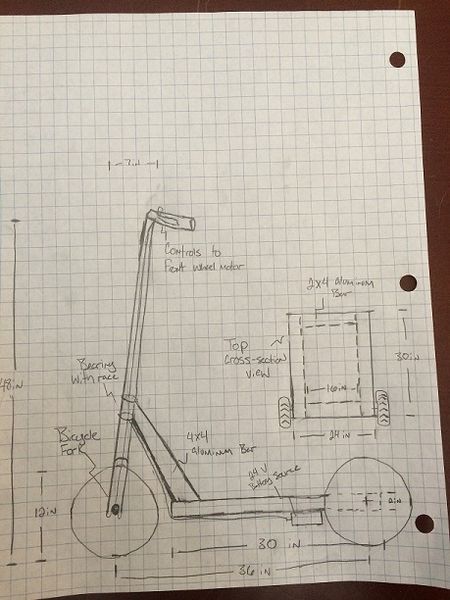 7in
Controls to
Front Wheel motor
2x4 aluminum
Bar
Top
cross-section
view
30in
16in
24in
Bearing
with race
48in
Bicycle
Fork
4x4
aluminum Bar
24 V
Battery Source
12in
2in
30 in
36 in